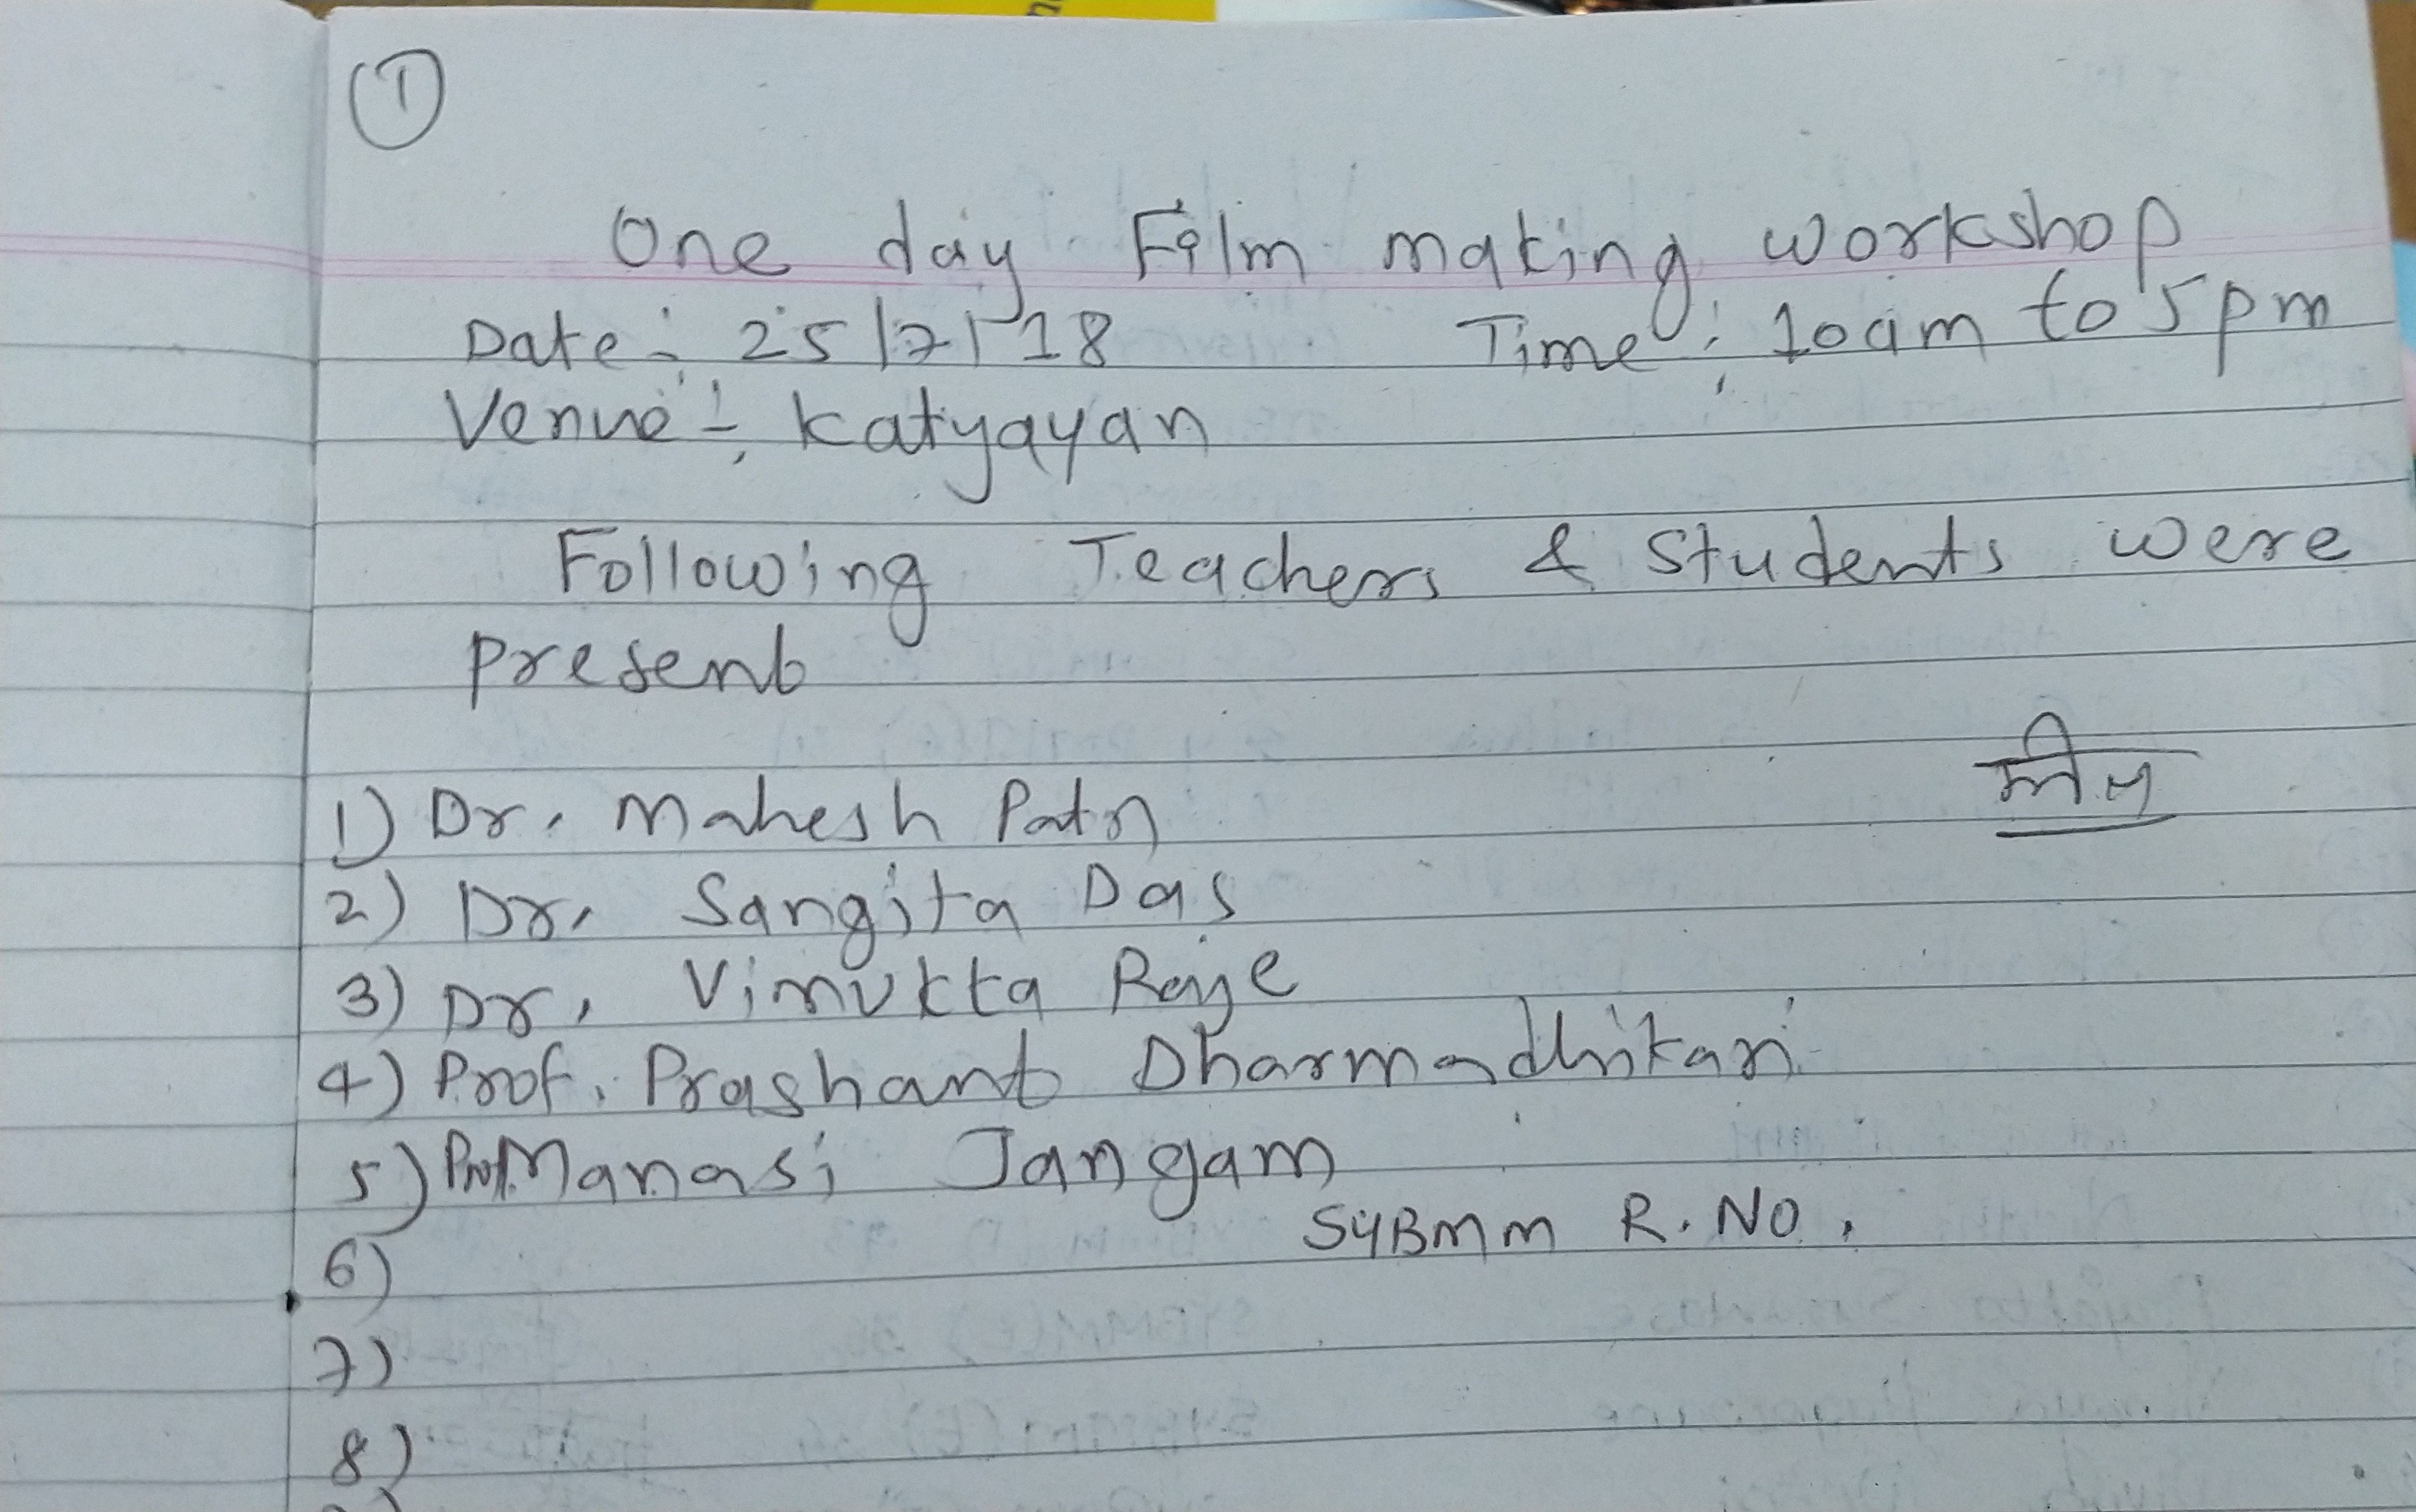 1
One day Film making workshop
Date: 25/7/18 Time: 10am to 5pm
Venue: Katyayan
Following Teachers & Students were
present
1) Dr. Mahesh Patil
2) Dr. Sangita Das
3) Dr. Vimukta Raje
4) Prof. Prashant Dharmadhikari
5) Prof. Manasi Jangam
SYBMM R. NO.
6)
7)
8)